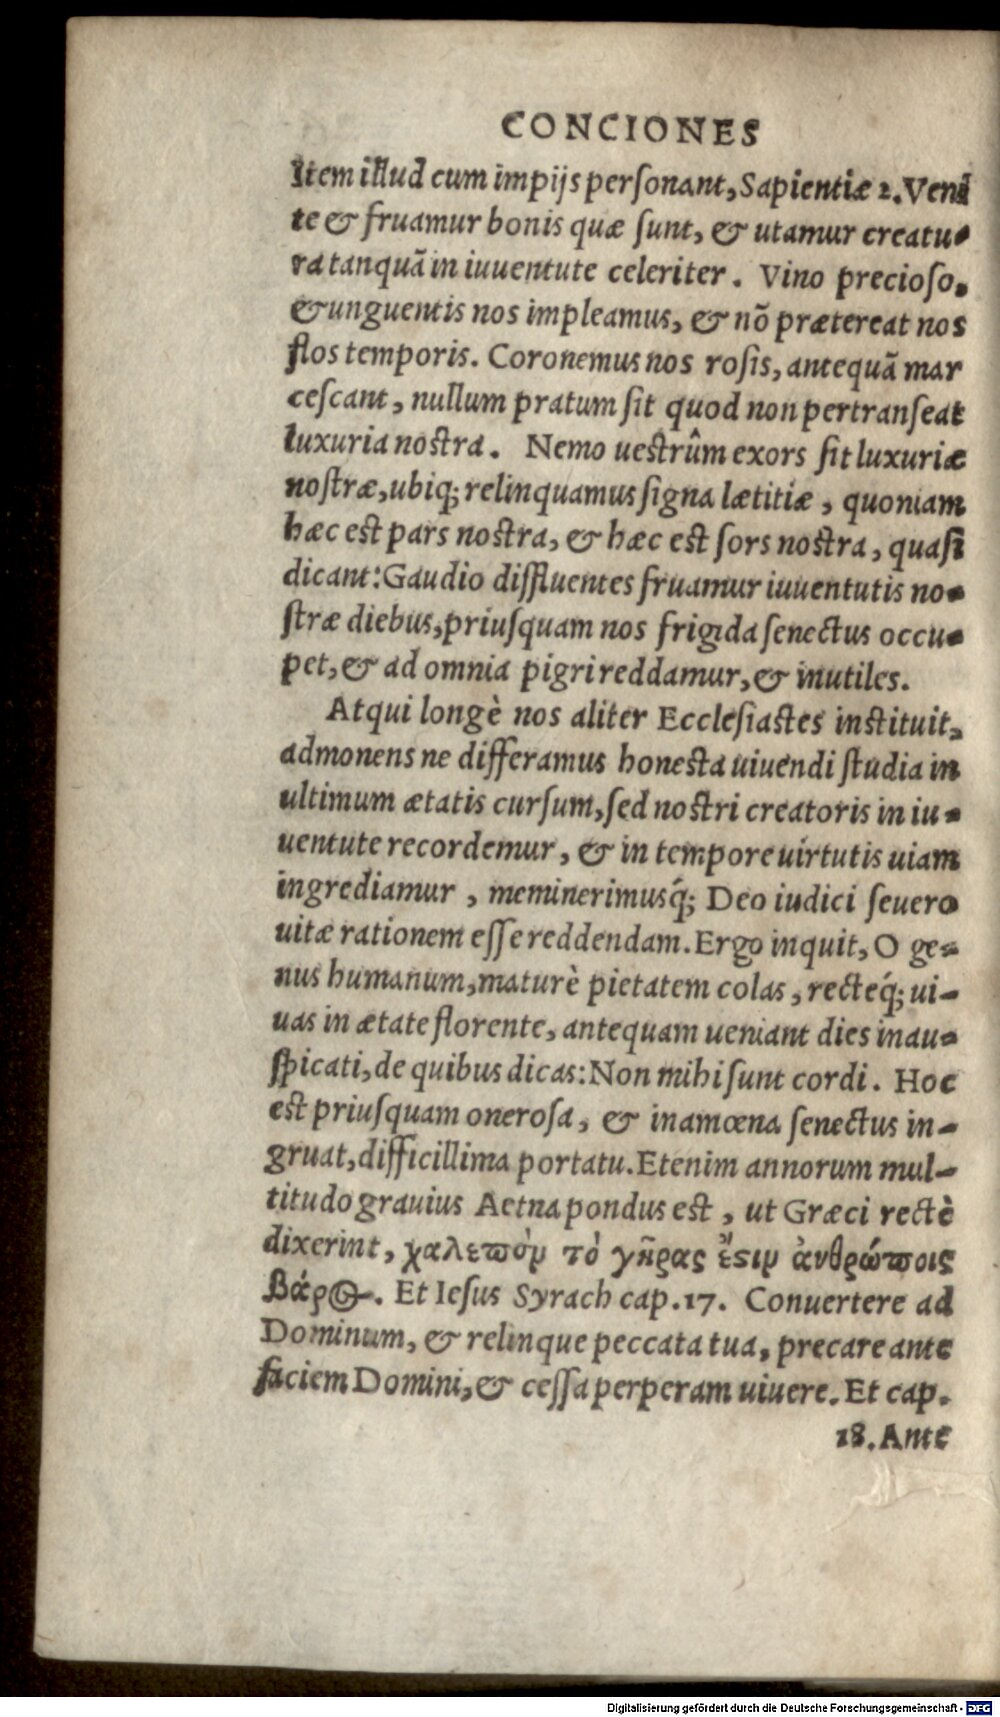 CONCIONES
Item illud cum impijs personant, Sapientiæ 2. Veni
te & fruamur bonis quæ sunt, & utamur creatu-
ra tanquã in iuuentute celeriter. Vino precioso,
& unguentis nos impleamus, & nõ prætereat nos
flos temporis. Coronemus nos rosis, antequã mar
cescant, nullum pratum sit quod non pertranseat
luxuria nostra. Nemo uestrûm exors sit luxuriæ
nostræ, ubiq; relinquamus signa lætitiæ, quoniam
hæc est pars nostra, & hæc est sors nostra, quasi
dicant: Gaudio diffluentes fruamur iuuentutis no-
stræ diebus, priusquam nos frigida senectus occu-
pet, & ad omnia pigri reddamur, & inutiles.
Atqui longè nos aliter Ecclesiastes instituit,
admonens ne differamus honesta uiuendi studia in
ultimum ætatis cursum, sed nostri creatoris in iu-
uentute recordemur, & in tempore uirtutis uiam
ingrediamur, meminerimusq́; Deo iudici seuero
uitæ rationem esse reddendam. Ergo inquit, O ge-
nus humanum, maturè pietatem colas, recteq́; ui-
uas in ætate florente, antequam ueniant dies inau-
spicati, de quibus dicas: Non mihi sunt cordi. Hoc
est priusquam onerosa, & inamœna senectus in-
gruat, difficillima portatu. Etenim annorum mul-
titudo grauius Aetna pondus est, ut Græci rectè
dixerint, χαλεπὸν τὸ γῆρας ἔστιν ἀνθρώποις
βάρος. Et Iesus Syrach cap. 17. Conuertere ad
Dominum, & relinque peccata tua, precare ante
faciem Domini, & cessa perperam uiuere. Et cap.
18. Ante
Digitalisierung gefördert durch die Deutsche Forschungsgemeinschaft - DFG